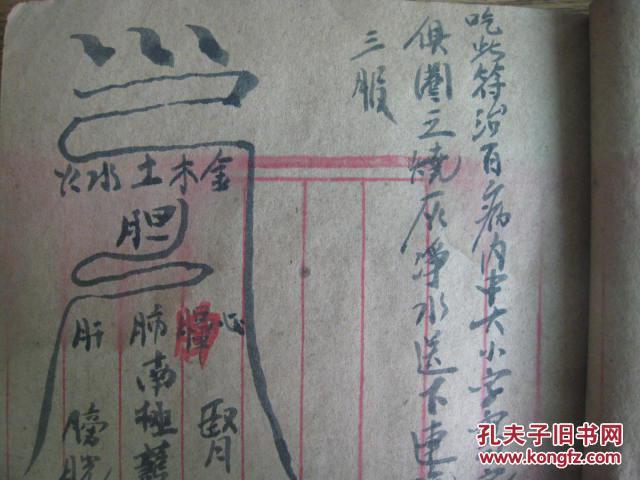 吃此符治百病内中大小字
俱圈之燒灰淨水送下連
三服
火水土木金
胆
心
腎
肺南極
肝
膀胱
孔夫子旧书网
www.kongfz.com